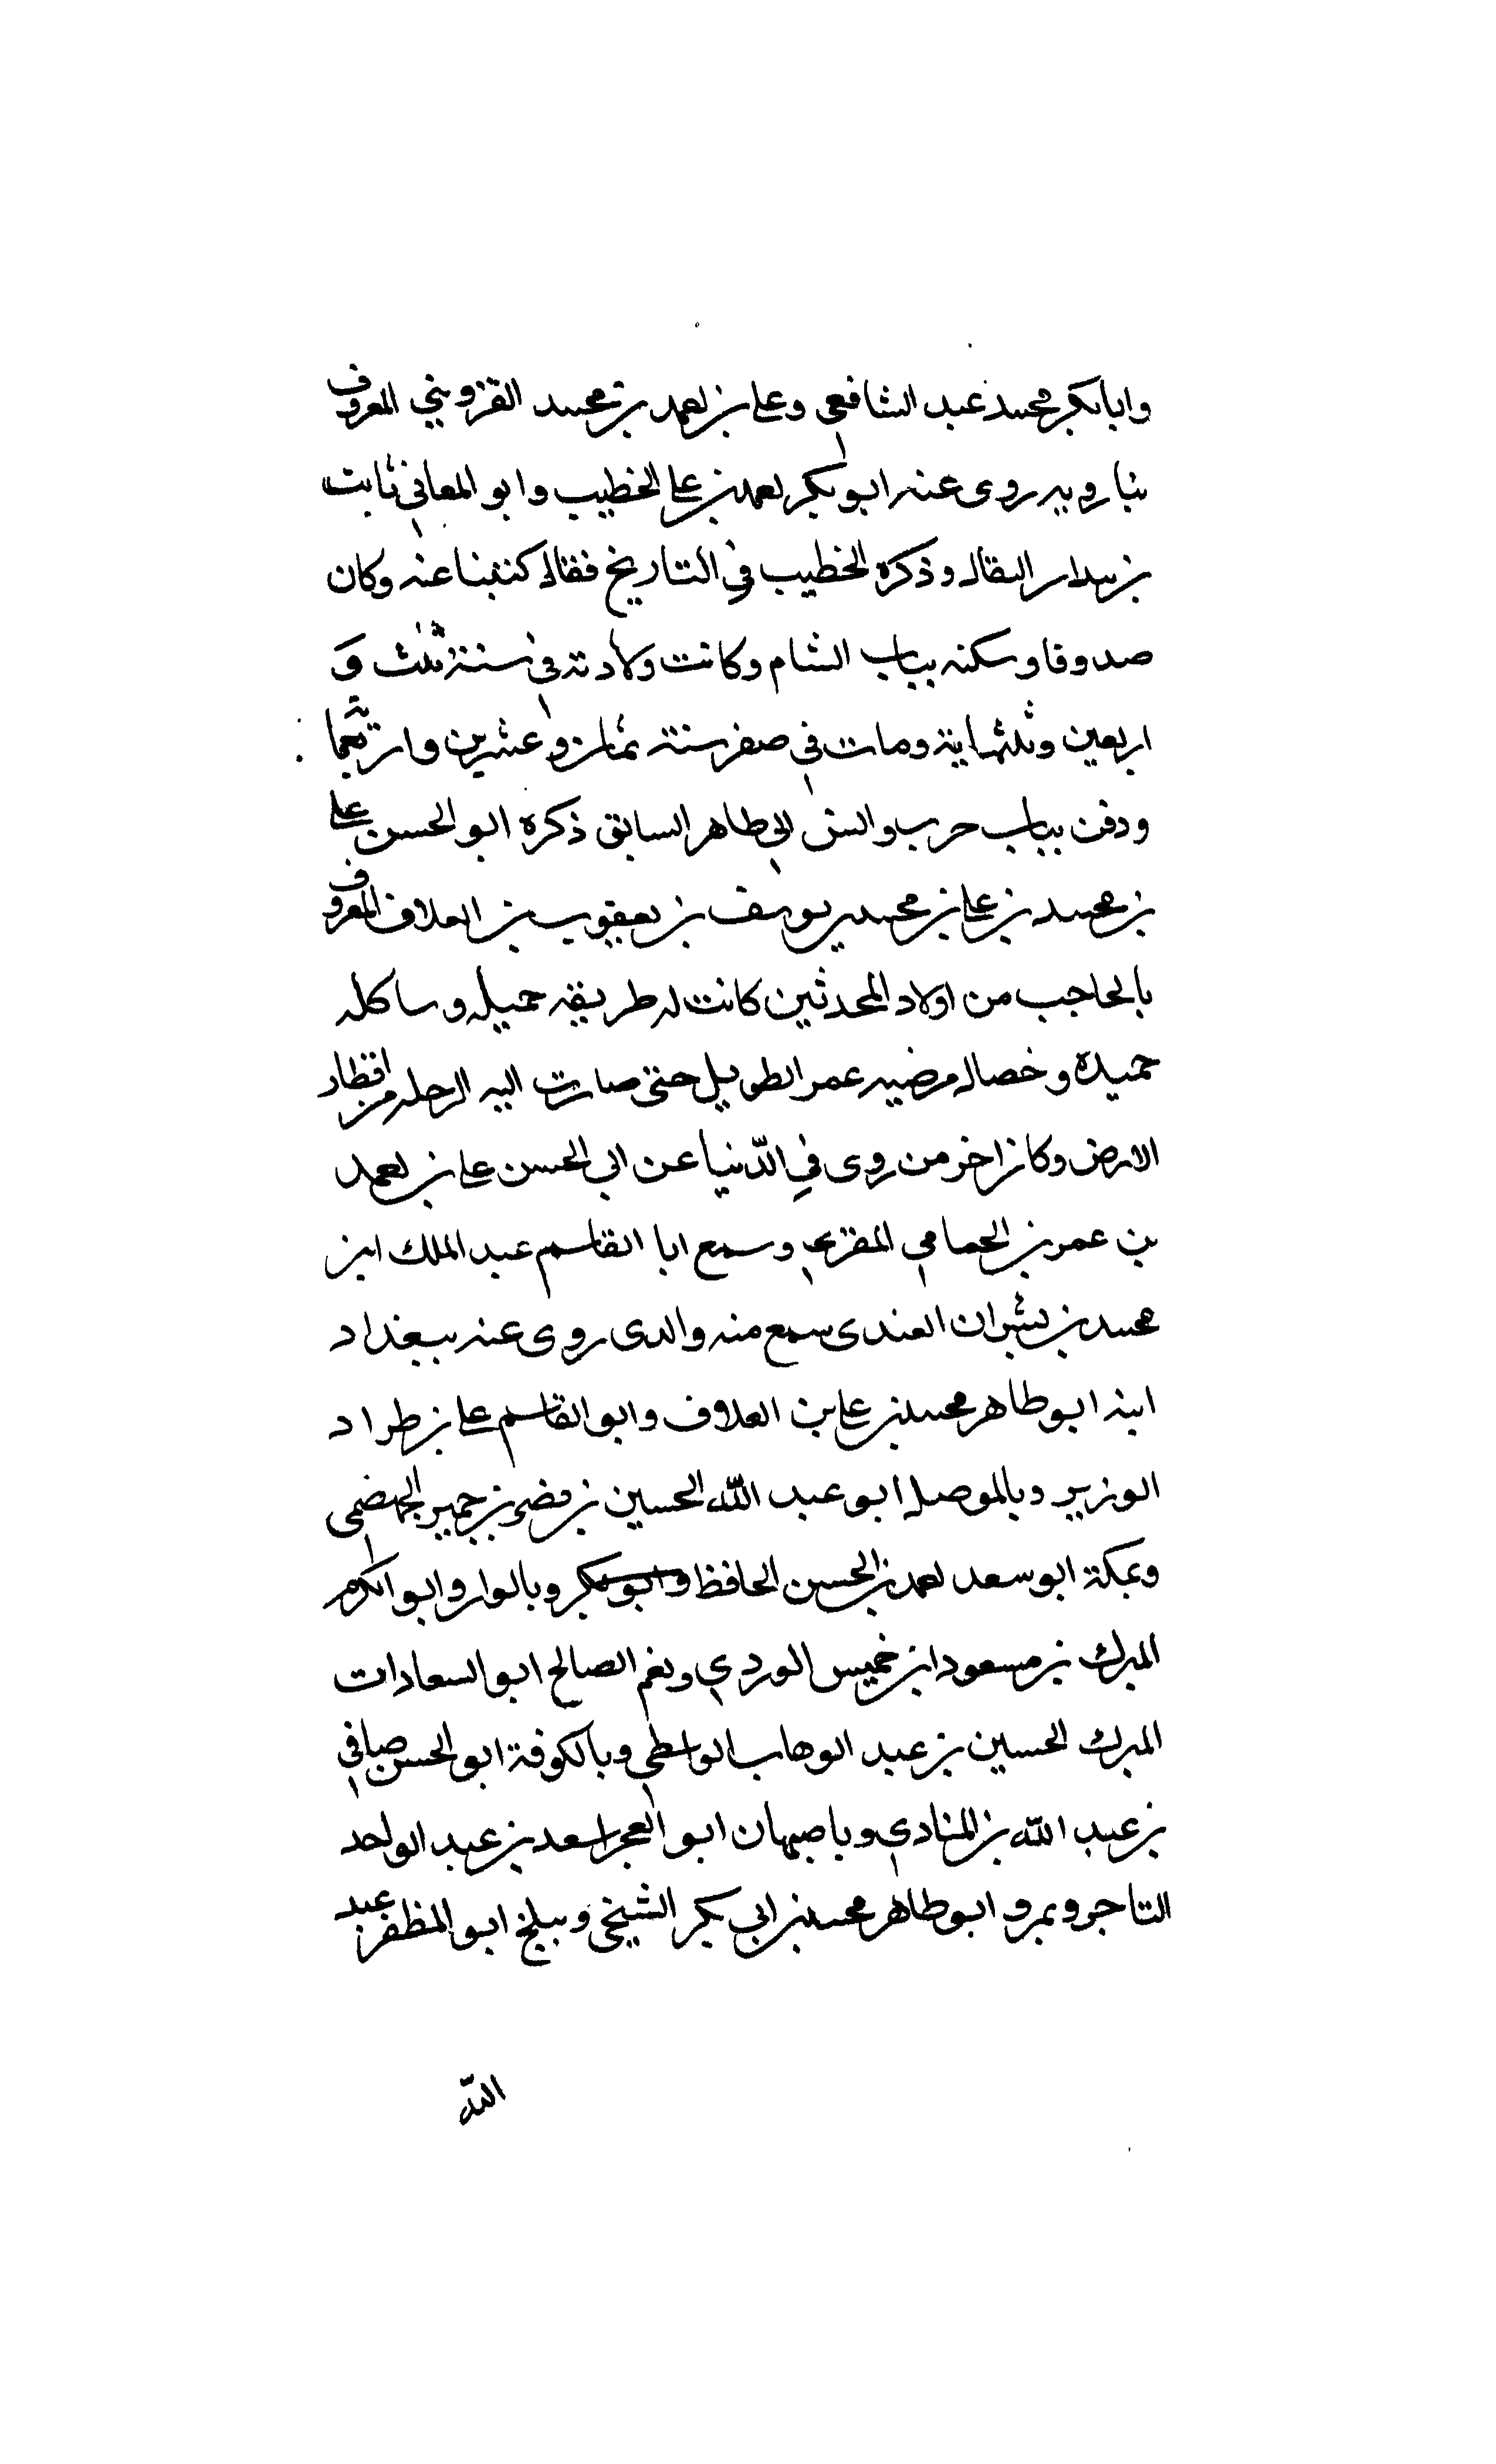 وابا بكر محمد عبد الشافعي وعلي بن احمد بن محمد القزويني المعروف
بنارويه روى عنه ابو بكر احمد بن علي الخطيب وابو المعاني ثابت
بن بندار البقال وذكره الخطيب في التاريخ فقال كتبنا عنه وكان
صدوقا وسكنه بباب الشام وكانت ولادته في سنة ثلث و
اربعين وثلثماية ومات في صفر سنة ثمان وعشرين واربعما
ودفن بباب حرب وابن ابي طاهر السابق ذكره ابو الحسن علي
بن محمد بن علي بن محمد بن يوسف بن يعقوب بن العلاف المعروف
بالحاجب من اولاد المحدثين كانت له طريقه جميله وساكله
حميدة وخصال مرضيه عمر الطويل حتى صارت اليه الرحله من اقطار
الارض وكان اخر من روى في الدّنيا عن ابي الحسن علي بن احمد
بن عمر بن الحمامي المقري وسمع ابا القاسم عبد الملك ابن
محمد بن بشران العندى سمع منه والدى روى عنه ببغداد
ابنه ابو طاهر محمد بن علي بن العلاف وابو القاسم علي بن طراد
الوزير وبالموصل ابو عبد الله الحسين بن نصر بن خمير الجهضمي
وبمكة ابو سعد احمد بن الحسن الحافظ وابو بكر وبالوار وابو الكرم
المبرك بن مسعود ابن خميس الوردي وبفم الصالح ابو السعادات
المبرك الحسين بن عبد الوهاب الواسطي وبالكوفة ابو الحسن صافي
بن عبد الله بن المنادي وباصبهان ابو العجر اسعد بن عبد الواحد
التاجر وبمرو ابو طاهر محمد بن ابي بكر الشيخي وببلخ ابو المظفر عبد
اللّه